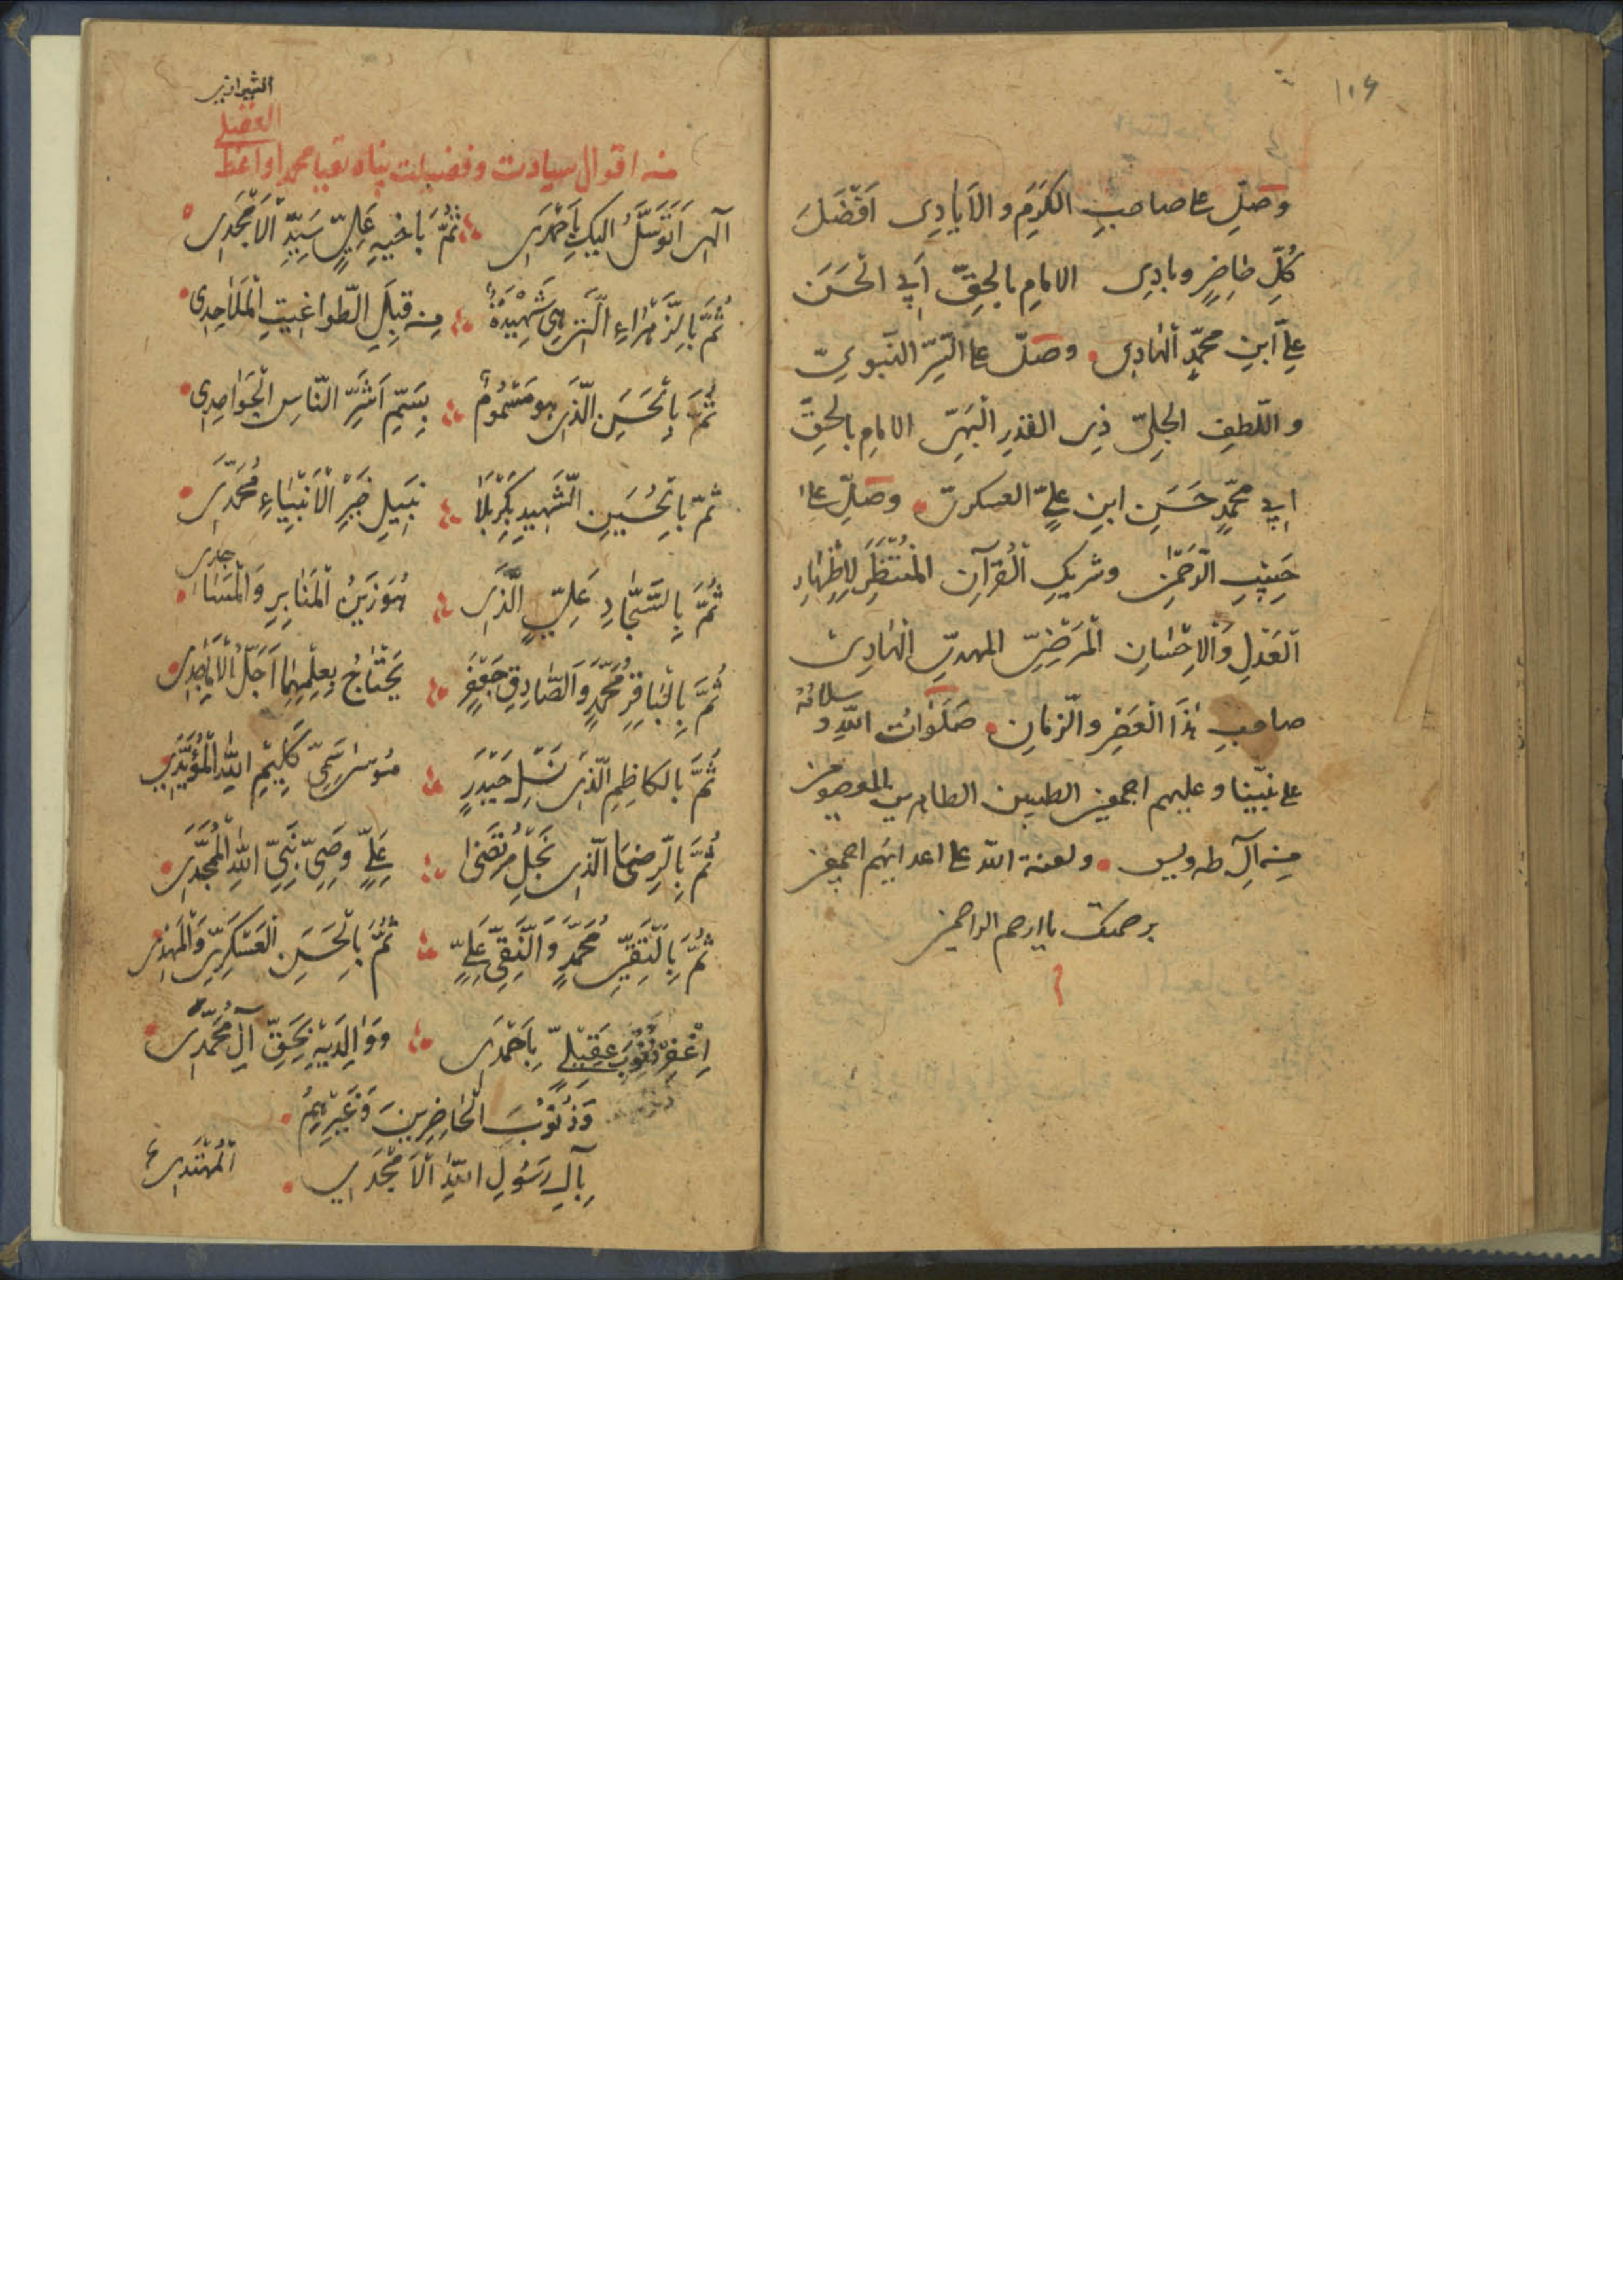 ١٠٤
وصلِّ على صاحبِ الكَرَمِ والاَيادِی اَفْضَلَ
كُلِّ حاضِرٍ وبادِی الامامِ بالحقِّ اَبی الْحَسَنَ
علیِّ ابنِ محمّدٍ الهَادی وصلّ على السِّرِّ النّبویّ
واللّطفِ الجلیّ ذی القدرِ الْبَهِیّ الامامِ بالحقِّ
ابی محمّدٍ حَسَنِ ابنِ علیٍّ العسكریّ وصلِّ على
حَبِیْبِ الرّحَمٰنِ وشریكِ الْقُرآنِ الْمُنْتَظَرِ لِاِظْهَارِ
الْعَدْلِ وَالْاِحْسَانِ الْمَرْضِیِّ المهدیّ الْهَادِی
صاحبِ هٰذَا الْعَصْرِ والزّمانِ صَلَوَاتُ اللّٰهِ و سلامُهُ
على نبیّنا وعلیهم اجمعین الطیبین الطاهرین المعصومین
من آلِ طه ویس ولعنة اللّه على اعدائهم اجمعین
برحمتك یا ارحم الراحمین
الشیرازی
العقیلی
من اقوال سیادت وفضیلت پناه تقیا محمد واعظ
اِلٰهی اَتَوَسَّلُ الیكَ بِاَحْمَدَی ثُمَّ بِاَخیهِ عَلِیٍّ سَیِّدِ الْاَمْجَدِی
ثُمَّ بِالزَّهْرَاءِ الَّتی هِیَ شَهِیْدَةٌ مِنْ قِبَلِ الطّواغیتِ الْمَلَاحِدِی
ثُمَّ بِالْحَسَنِ الَّذی هو مَسْمُوْمٌ بِسَمِّ اَشَرِّ النّاسِ الْجَوَاحِدِی
ثُمَّ بِالْحُسَیْنِ الشَّهِیْدِ بِكَرْبَلَا نَبِیْلِ خَیْرِ الْاَنْبِیَاءِ مُحَمَّدَی
ثُمَّ بِالسَّجَّادِ عَلِیٍّ الَّذی هُوَ زَیْنُ الْمَنَابِرِ وَالْمَسَاجدی
ثُمَّ بِالْبَاقِرِ مُحَمَّدٍ وَالصَّادِقِ جَعْفَرٍ یَحْتَاجُ بِعِلْمِهِمَا اَجَلُّ الْاَمَاجِدِی
ثُمَّ بِالكاظِمِ الَّذی نَسْلِ حَیْدَرٍ مُوسٰی سَمِیِّ كَلِیْمِ اللّٰهِ الْمُؤَیَّدِی
ثُمَّ بِالرِّضَا الَّذی نَجْلِ مُرْتَضٰی عَلِیٍّ وَصِیِّ نَبِیِّ اللّٰهِ الْمُمَجَّدَی
ثُمَّ بِالتَّقِیِّ مُحَمَّدٍ وَالنَّقِیِّ عَلِیٍّ ثُمَّ بِالْحَسَنِ الْعَسْكَرِیِّ وَالْمَهْدِی
اِغْفِرْ ذُنُوْبَ عَقِیْلِیٍّ بِاَحْمَدَی وَوَالِدَیْهِ بِحَقِّ آلِ مُحَمَّدَی
وَذُنُوْبَ الْحَاضِرِیْنَ وَغَیْرِهِمْ
بِآلِ رَسُوْلِ اللّٰهِ الْاَمْجَدَی
الْمُهْتَدِی